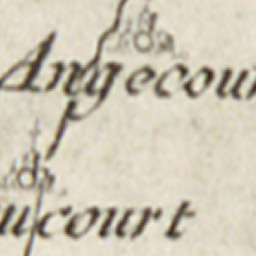 Angecour
ucourt